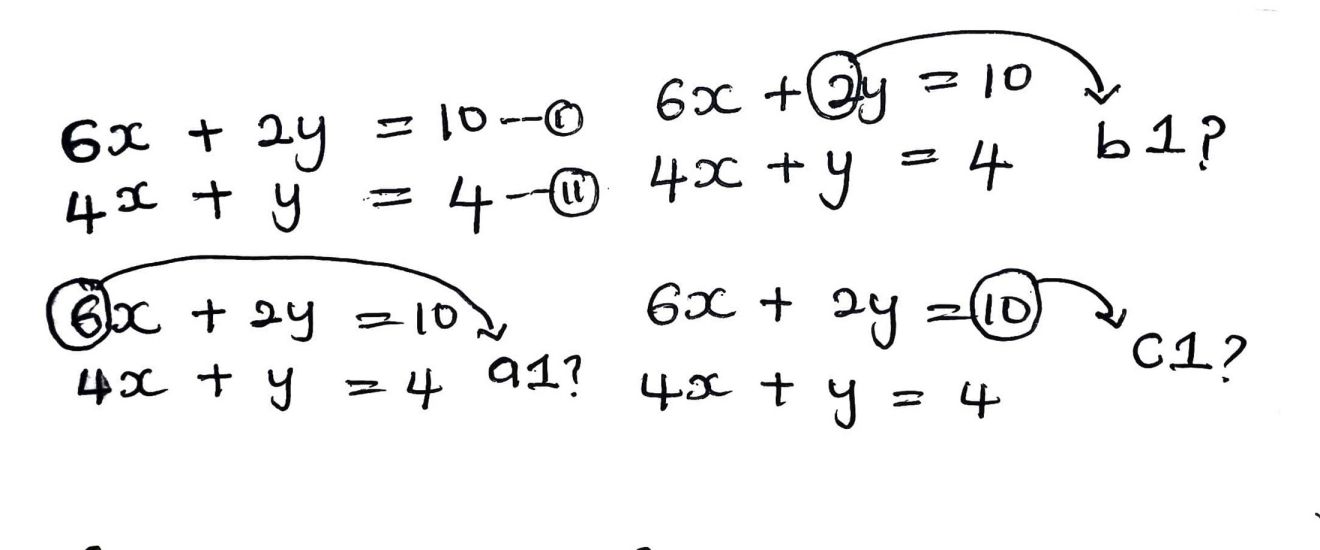 6x + 2y = 10 --- (i)
4x + y = 4 --- (ii)
6x + 2y = 10
4x + y = 4
b1?
6x + 2y = 10
4x + y = 4
a1?
6x + 2y = 10
4x + y = 4
C1?